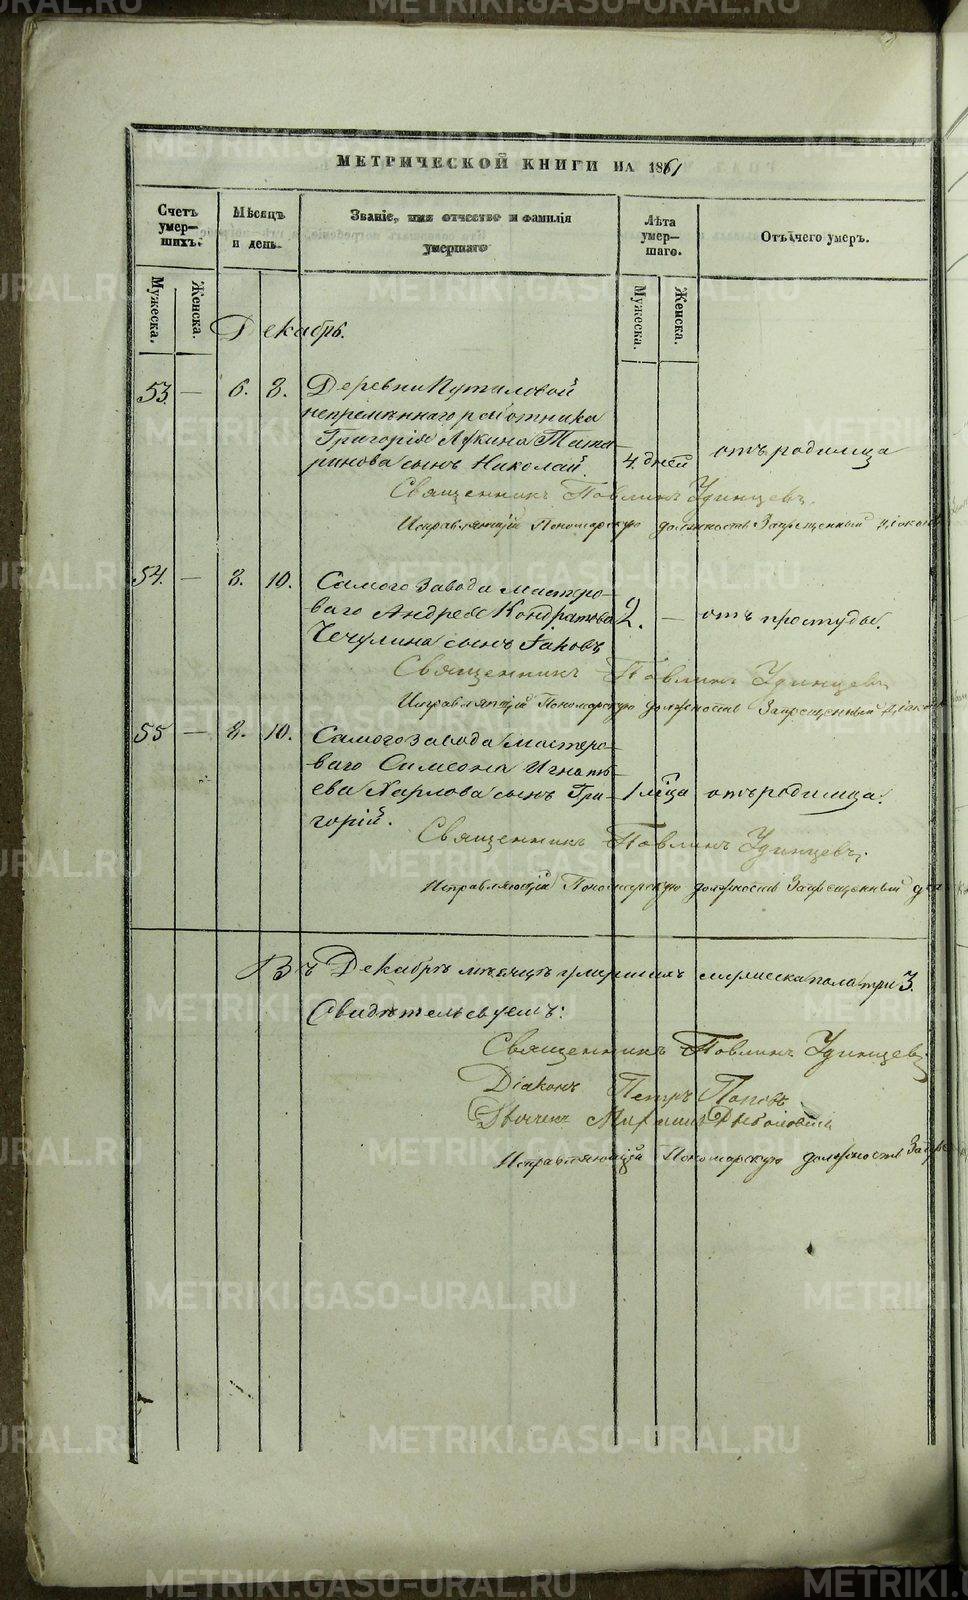 МЕТРИЧЕСКОЙ КНИГИ НА 1861
Счетъ умер—шихъ.
Мѣсяцъ и день.
Званіе, имя отчество и фамилія умершаго
Лѣта умер—шаго.
Отъ чего умеръ.
Мужеска.
Женска.
Мужеска.
Женска.
Декабрь.
53. — 6. 8. Деревни Путиловой
непремѣннаго работника
Григорія Татаринова сынъ Николай. 4 дней отъ родимца
Священникъ Павлинъ Удинцевъ.
Исправляющій Пономарскую должность Запрещенный діаконъ
54. — 8. 10. Самого завода мастеро-
ваго Андрея Кондратова 2. — отъ простуды.
Чечулина сынъ Іаковъ
Священникъ Павлинъ Удинцевъ
Исправляющій Пономарскую должность Запрещенный діаконъ
55 — 8. 10. Самого завода мастеро-
ваго Симеона Игнать-
ева Харлова сынъ Гри- 1 мца отъ родимца.
горій.
Священникъ Павлинъ Удинцевъ.
Исправляющій Пономарскую должность Запрещенный діа
Въ Декабрѣ мѣсяцѣ умершихъ мужеска пола три 3.
Свидѣтельсвуемъ:
Священникъ Павлинъ Удинцевъ
Діаконъ Петръ Поповъ
Дьячекъ
Исправляющій Пономарскую должность Запре
METRIKI.GASO-URAL.RU